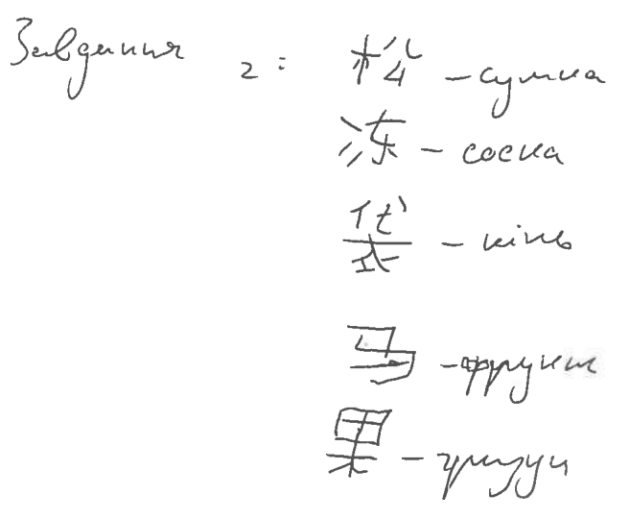 Завдання 2: 松 - сумка
冻 - соска
袋 - кінь
马 - фрукт
果 - гризун